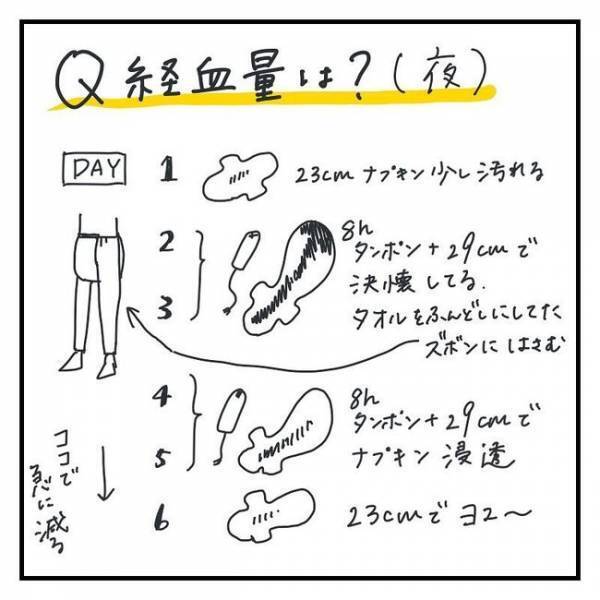 Q 経血量は?(夜)
DAY
1 23cmナプキン少し汚れる
2
3
8h
タンポン+29cmで
決壊してる.
タオルをふんどしにしてた
ズボンにはさむ
4
5
8h
タンポン+29cmで
ナプキン浸透
ココで
急に減る
6 23cmでヨユ〜